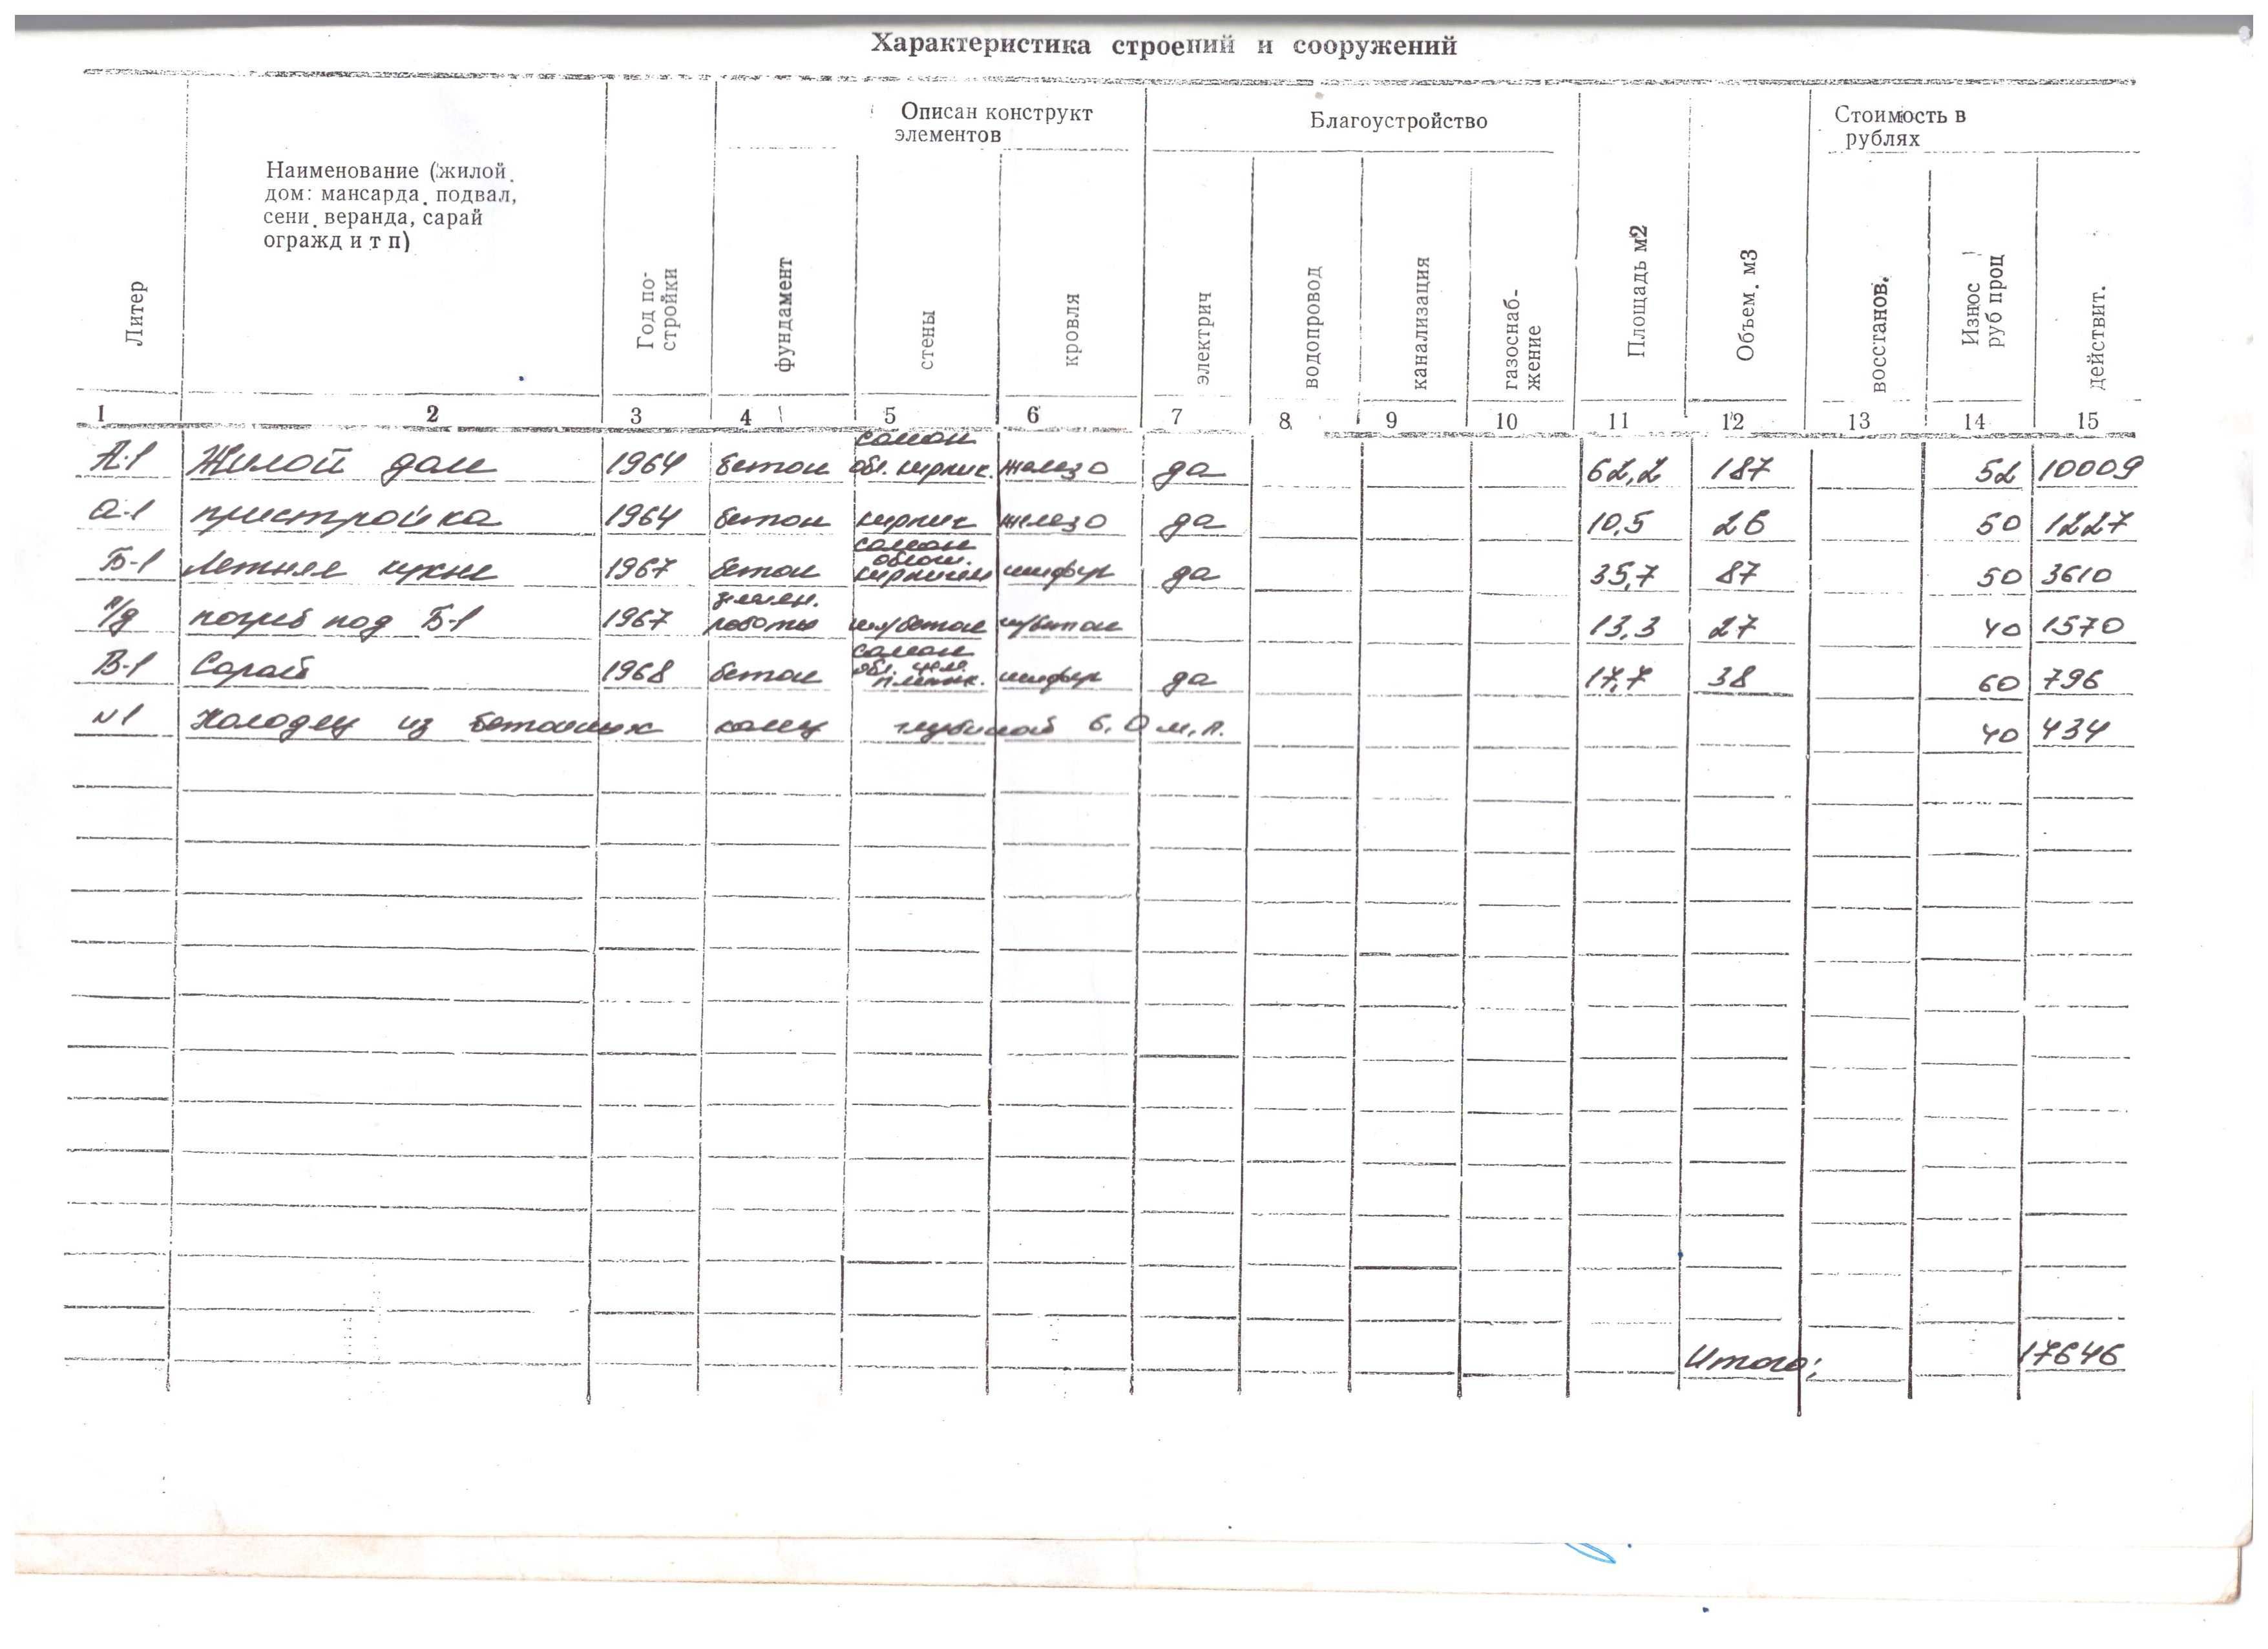 Характеристика строений и сооружений
Описан конструкт
элементов
Благоустройство
Стоимость в
рублях
Наименование (жилой
дом: мансарда, подвал,
сени, веранда, сарай
огражд и т п)
Литер
Год по-
стройки
фундамент
стены
кровля
электрич
водопровод
канализация
газоснаб-
жение
Площадь м2
Объем. м3
восстанов.
Износ
руб проц
действит.
1 2 3 4 5 6 7 8 9 10 11 12 13 14 15
саман
А-1 Жилой дом 1964 бетон обл. кирпич. железо да 62,2 187 52 10009
а-1 пристройка 1964 бетон кирпич железо да 10,5 26 50 1227
саман
облиц.
Б-1 Летняя кухня 1967 бетон кирпичем шифер да 35,7 87 50 3610
землян.
п/д погреб под Б-1 1967 работы шл/бетон ш/бетон 13,3 27 40 1570
саман
обл. цем.
В-1 Сарай 1968 бетон плитк. шифер да 17,7 38 60 796
N1 Колодец из бетонных колец глубиной 6,0 м.п. 40 434
Итого: 17646